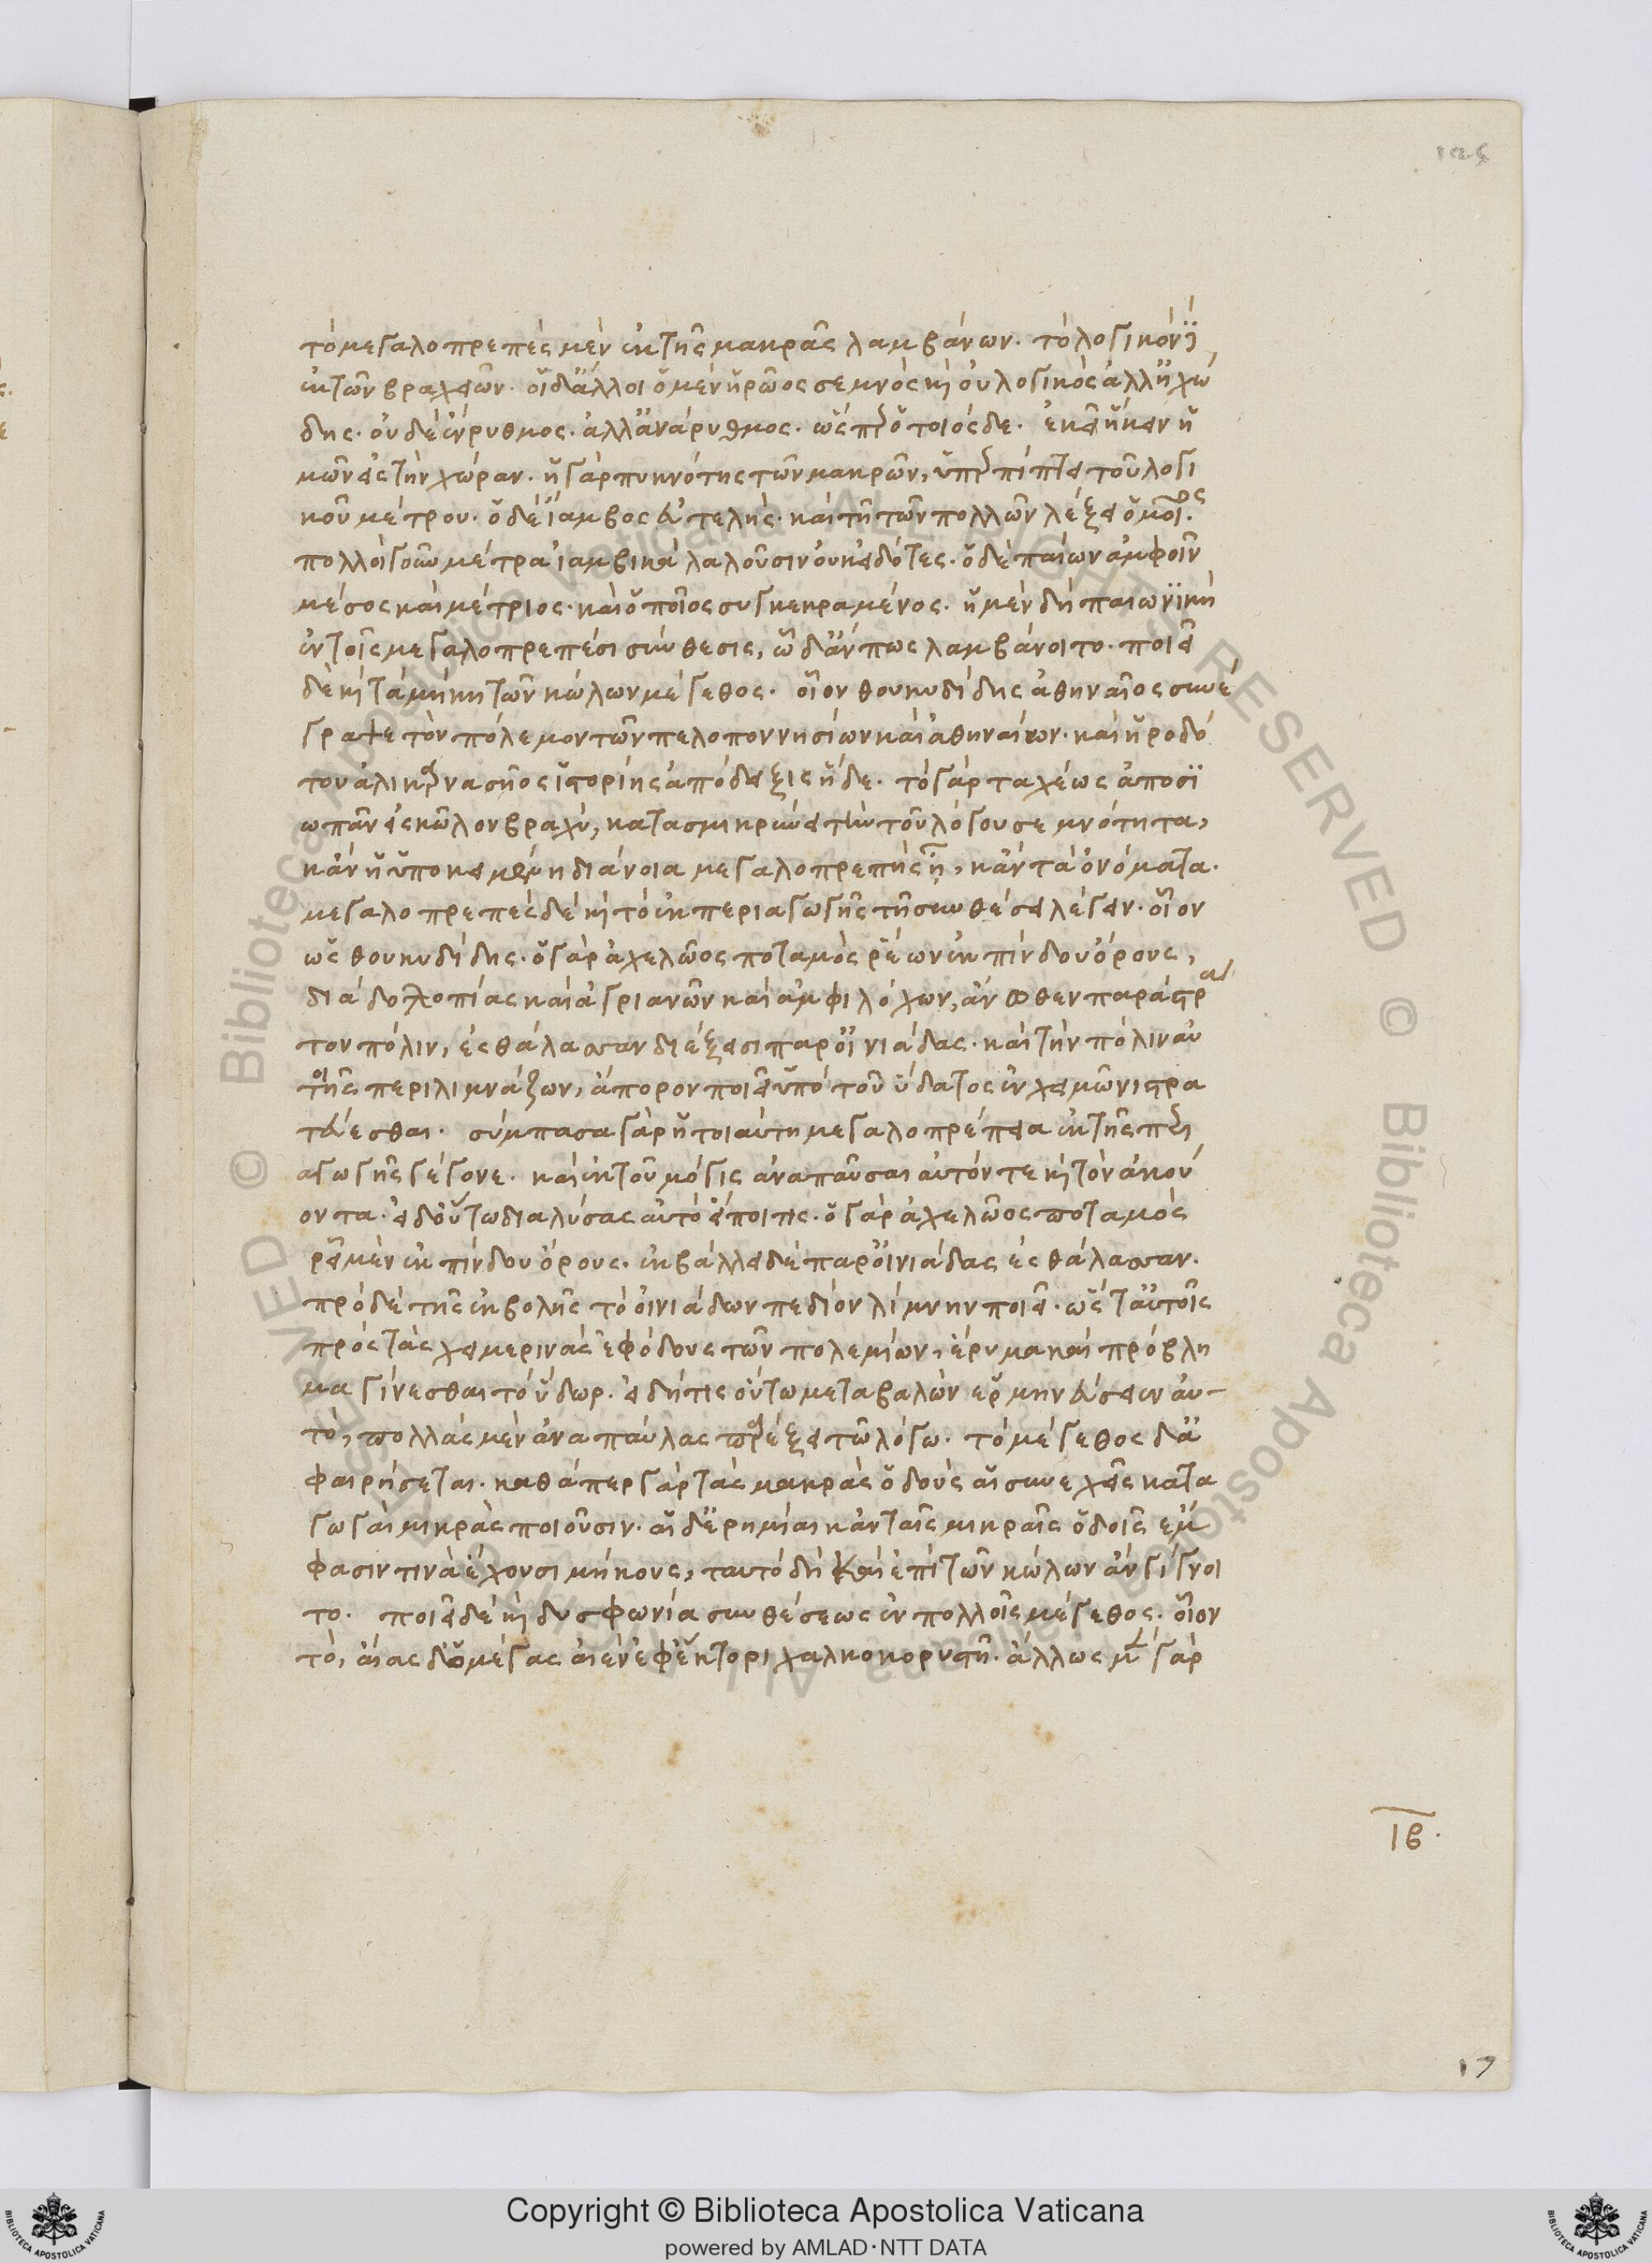 τὸ μεγαλοπρεπὲς μὲν ἐκ τῆς μακρᾶς λαμβάνων. τὸ λογικὸν δὲ
ἐκ τῶν βραχειῶν. οἱ δ' ἄλλοι ὁ μὲν ἡρῶος σεμνὸς καὶ οὐ λογικὸς ἀλλ' ἠχώ
δης. οὐδὲ ἔνρυθμος. ἀλλ' ἀνάρυθμος. ὥσπερ ὁ τοιόσδε. ἐκεῖ ἥκειν ἡ
μῶν εἰς τὴν χώραν. ἡ γὰρ πυκνότης τῶν μακρῶν, ὑπερπίπτει τοῦ λογι
κοῦ μέτρου. ὁ δὲ ἴαμβος εὐτελής. καὶ τῇ τῶν πολλῶν λέξει ὅμοιος.
πολλοὶ γοῦν μέτρα ἰαμβικὰ λαλοῦσιν οὐκ εἰδότες. ὁ δὲ παίων ἀμφοῖν
μέσος καὶ μέτριος. καὶ ὁποῖος συγκεκραμένος. ἡ μὲν δὴ παιωνικὴ
ἐν τοῖς μεγαλοπρεπέσι σύνθεσις, ὧδ' ἄν πως λαμβάνοιτο. ποιεῖ
δὲ καὶ τὰ μήκη τῶν κώλων μέγεθος. οἷον θουκυδίδης ἀθηναῖος συνέ
γραψε τὸν πόλεμον τῶν πελοποννησίων καὶ ἀθηναίων. καὶ ἡροδό
του ἁλικαρνασῆος ἱστορίης ἀπόδειξις ἥδε. τὸ γὰρ ταχέως ἀποσι
ωπᾶν εἰς κῶλον βραχύ, κατασμικρύνει τὴν τοῦ λόγου σεμνότητα,
κἂν ἡ ὑποκειμένη διάνοια μεγαλοπρεπὴς ᾖ, κἂν τὰ ὀνόματα.
μεγαλοπρεπὲς δὲ καὶ τὸ ἐκ περιαγωγῆς τῇ συνθέσει λέγειν. οἷον
ὡς θουκυδίδης. ὁ γὰρ ἀχελῶος ποταμὸς ῥέων ἐκ πίνδου ὄρους,
διὰ δολοπίας καὶ ἀγριανῶν καὶ ἀμφιλόχων, ἄνωθεν παρὰ στρα
τον πόλιν, ἐς θάλασσαν διέξεισι παρ' οἰνιάδας. καὶ τὴν πόλιν αὐ
τοῖς περιλιμνάζων, ἄπορον ποιεῖ ὑπὸ τοῦ ὕδατος ἐν χειμῶνι στρα
τεύεσθαι. σύμπασα γὰρ ἡ τοιαύτη μεγαλοπρέπεια ἐκ τῆς περι
αγωγῆς γέγονε. καὶ ἐκ τοῦ μόγις ἀναπαῦσαι αὐτόν τε καὶ τὸν ἀκού
οντα. εἰ δ' οὕτω διαλύσας αὐτὸ εἴποι τις. ὁ γὰρ ἀχελῶος ποταμὸς
ῥεῖ μὲν ἐκ πίνδου ὄρους. ἐκβάλλει δὲ παρ' οἰνιάδας ἐς θάλασσαν.
πρὸ δὲ τῆς ἐκβολῆς τὸ οἰνιάδων πεδίον λίμνην ποιεῖ. ὥστ' αὐτοῖς
πρὸς τὰς χειμερινὰς ἐφόδους τῶν πολεμίων, ἔρυμα καὶ πρόβλη
μα γίνεσθαι τὸ ὕδωρ. εἰ δή τις οὕτω μεταβαλὼν ἑρμηνεύσειεν αὐ-
τό, πολλὰς μὲν ἀναπαύλας παρέξει τῷ λόγω. τὸ μέγεθος δ' ἀ
φαιρήσεται. καθάπερ γὰρ τὰς μακρὰς ὁδοὺς αἱ συνεχεῖς κατα
γωγαὶ μικρὰς ποιοῦσιν. αἱ δ' ἐρημίαι κἀν ταῖς μικραῖς ὁδοῖς ἔμ
φασιν τινὰ ἔχουσι μήκους, ταυτὸ δὴ καὶ ἐπὶ τῶν κώλων ἂν γίγνοι
το. ποιεῖ δὲ καὶ δυσφωνία συνθέσεως ἐν πολλοῖς μέγεθος. οἷον
τό, αἴας δ' ὁ μέγας αἰὲν ἐφ' ἕκτορι χαλκοκορυστῇ. ἄλλως μὲν γὰρ
ιβ.
17